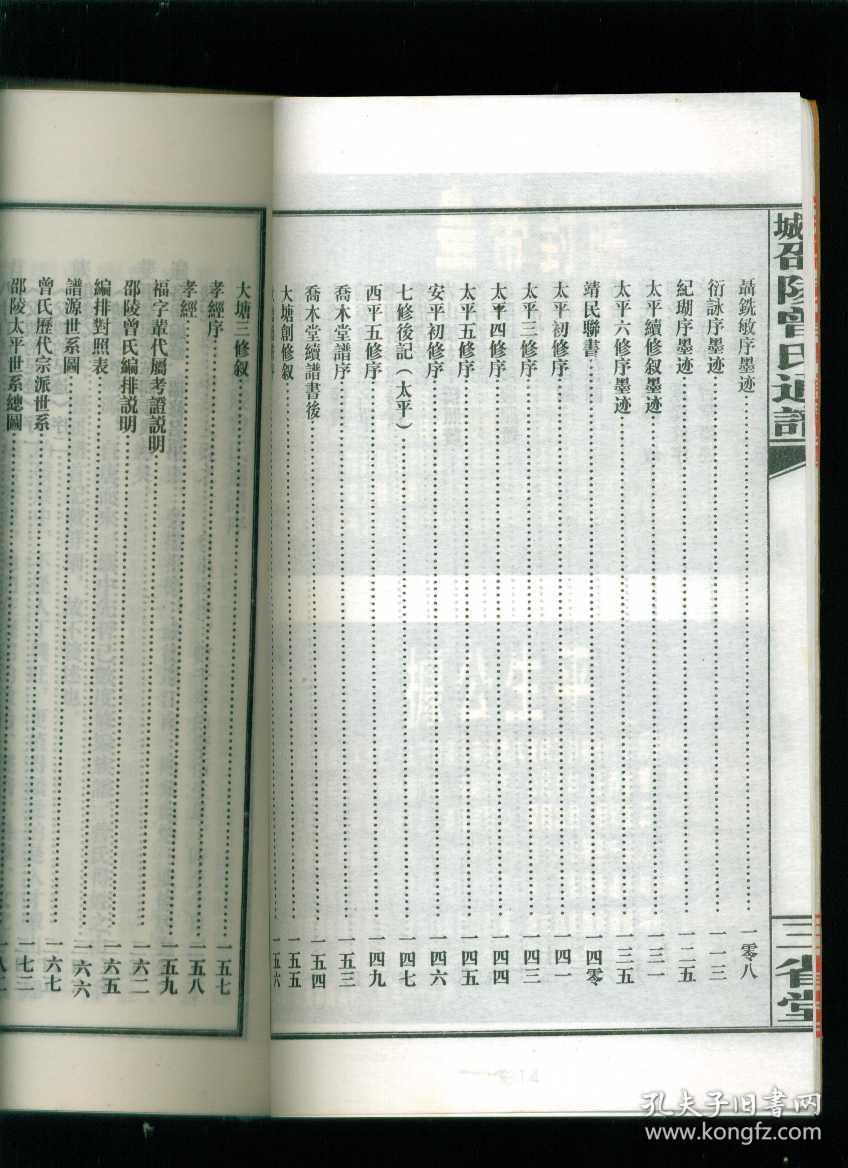 城邵陵曾氏通譜
三省堂
聶銑敏序墨迹……一零八
衍詠序墨迹……一一三
紀瑚序墨迹……一二五
太平續修叙墨迹……一三一
太平六修序墨迹……一三五
靖民聯書……一四零
太平初修序……一四一
太平三修序……一四三
太平四修序……一四四
太平五修序……一四五
安平初修序……一四六
七修後記（太平）……一四七
西平五修序……一四九
喬木堂譜序……一五三
喬木堂續譜書後……一五四
大塘創修叙……一五五
一五六
大塘三修叙……一五七
孝經序……一五八
孝經……一五九
福字輩代屬考證説明……一六二
邵陵曾氏編排説明……一六五
編排對照表……一六六
譜源世系圖……一六七
曾氏歷代宗派世系……一七二
邵陵太平世系總圖……一八二
孔夫子旧書网
www.kongfz.com